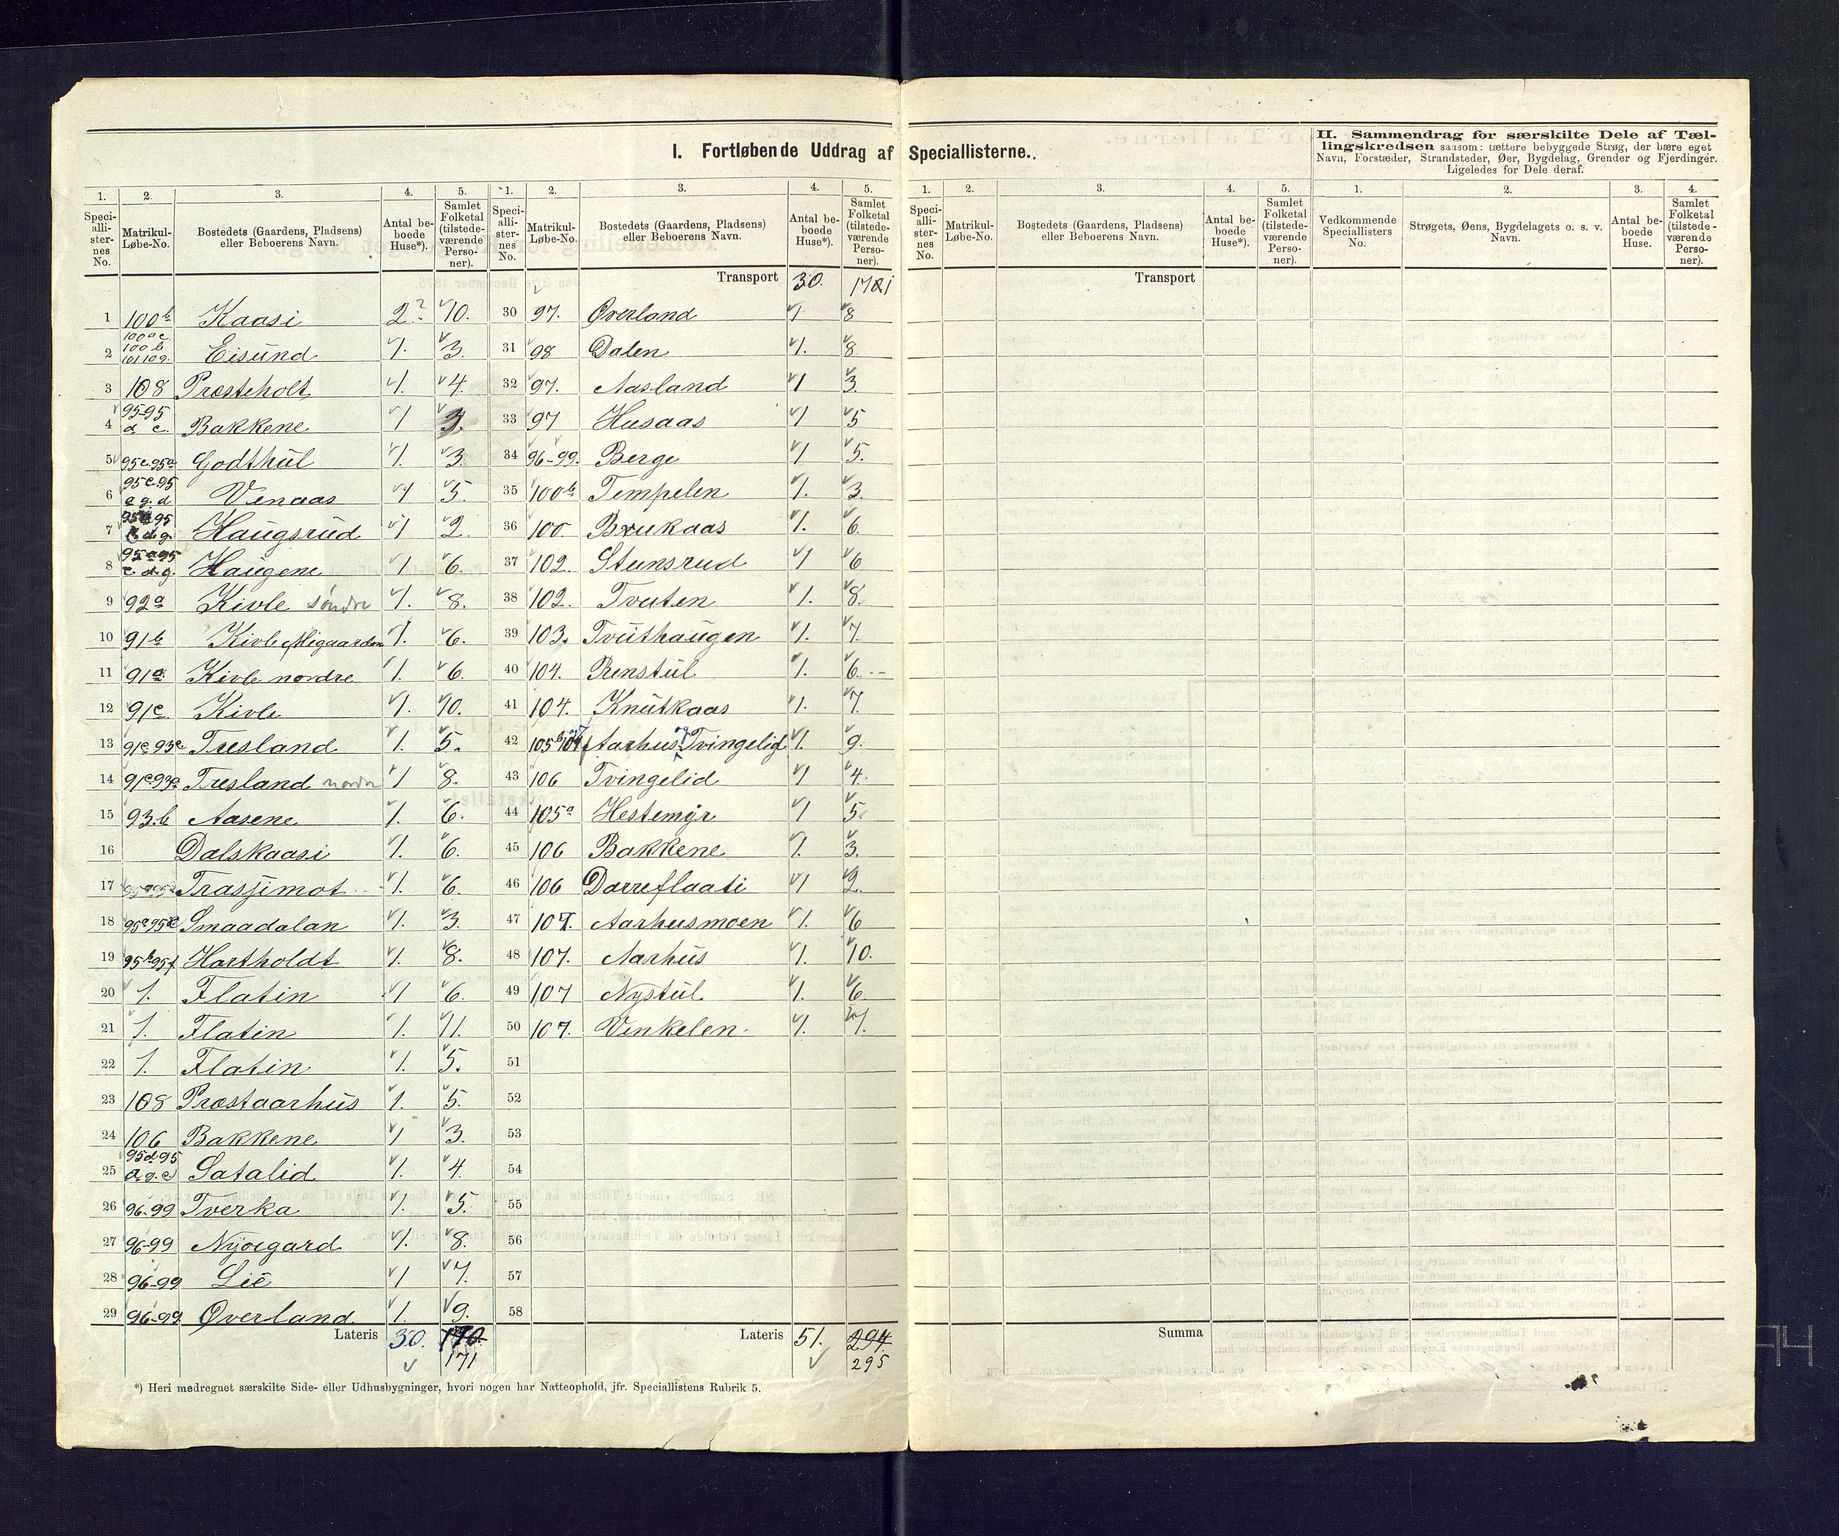 I. Fortløbende Uddrag af Speciallisterne.
II. Sammendrag for særskilte Dele af Tæl-
lingskredsen saasom: tættere bebyggede Strøg, der bære eget
Navn, Forstæder, Strandsteder, Øer, Bygdelag, Grender og Fjerdinger.
Ligeledes for Dele deraf.
1. 2. 3. 4. 5. 1. 2. 3. 4. 5. 1. 2. 3. 4. 5. 1. 2. 3. 4.
Speci-alli-ster-nes No. Matrikul-Løbe-No. Bostedets (Gaardens, Pladsens) eller Beboerens Navn. Antal be-boede Huse*). Samlet Folketal (tilstede-værende Perso-ner).
Speci-alli-ster-nes No. Matrikul-Løbe-No. Bostedets (Gaardens, Pladsens) eller Beboerens Navn. Antal be-boede Huse*). Samlet Folketal (tilstede-værende Perso-ner).
Speci-alli-ster-nes No. Matrikul-Løbe-No. Bostedets (Gaardens, Pladsens) eller Beboerens Navn. Antal be-boede Huse*). Samlet Folketal (tilstede-værende Perso-ner).
Vedkommende Speciallisters No. Strøgets, Øens, Bygdelagets o. s. v. Navn. Antal be-boede Huse. Samlet Folketal (tilstede-værende Personer).
1 100b Kaasi 2 10.
2 Eisund 1. 3.
3 108 Præsteholt 1. 4.
4 95-95 d c. Bakkene 1 3.
5 95c.95a Godthul 1. 3.
6 95c.95 e g. d Venaas 1 5.
7 Haugsrud 1 2.
8 95a95 c. d. g. Haugene 1 6.
9 92a Kivle søndre 1. 8.
10 91b Kivle Migaarden 1. 6.
11 91a Kivle nordre 1. 6.
12 91c. Kivle 1. 10.
13 91c.93c Træsland 1. 5.
14 91c93a Træsland nordre 1 8.
15 93.b Aasene 1. 6.
16 Dalskaasi 1. 6.
17 Trasjimot 1. 6.
18 Smaadalan 1. 3.
19 95b95f Hartholdt 1. 8.
20 1. Flatin 1 6.
21 1. Flatin 1. 11.
22 1. Flatin 1. 5.
23 108 Præstaarhus 1. 5.
24 106 Bakkene 1 3.
25 95d.95 a. g. c Satalid 1. 4.
26 96-99 Tverka 1. 5.
27 96-99 Nyøegard 1. 8.
28 96-99 Lie 1 7.
29 96-99. Øverland 1. 9.
Lateris 30. 170. 171
Transport 30. 171
30 97. Øverland 1 8
31 98 Dalen 1. 8.
32 97. Aasland 1 3.
33 97 Husaas 1 5
34 96-99. Berge 1 5.
35 100b Tempelen 1. 3.
36 100. Brukaas 1. 6.
37 102. Stensrud 1 6
38 102. Tveten 1. 8.
39 103. Tvuthaugen 1. 7.
40 104. Renstul 1. 6.
41 104. Knutkaas 1. 7.
42 105b104 Aarhus og Tvingelid 1. 9.
43 106 Tvingelid 1 4.
44 105a Hestemyr 1 5.
45 106 Bakkene 1. 3.
46 106 Dærreflaati 1 2.
47 107. Aarhusmoen 1. 6
48 107. Aarhus 1. 10.
49 107 Nystul 1. 6
50 107. Vinkelen. 1. 7.
51
52
53
54
55
56
57
58
Lateris 51. 294. 295
Transport
Summa
*) Heri medregnet særskilte Side- eller Udhusbygninger, hvori nogen har Natteophold, jfr. Speciallistens Rubrik 5.